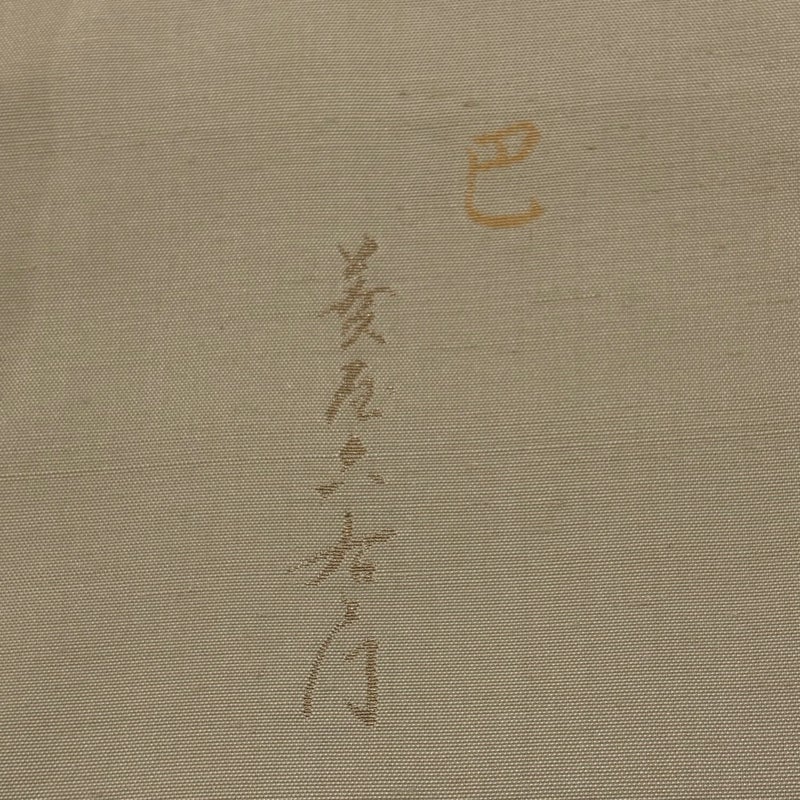 巴
菱屋六右門